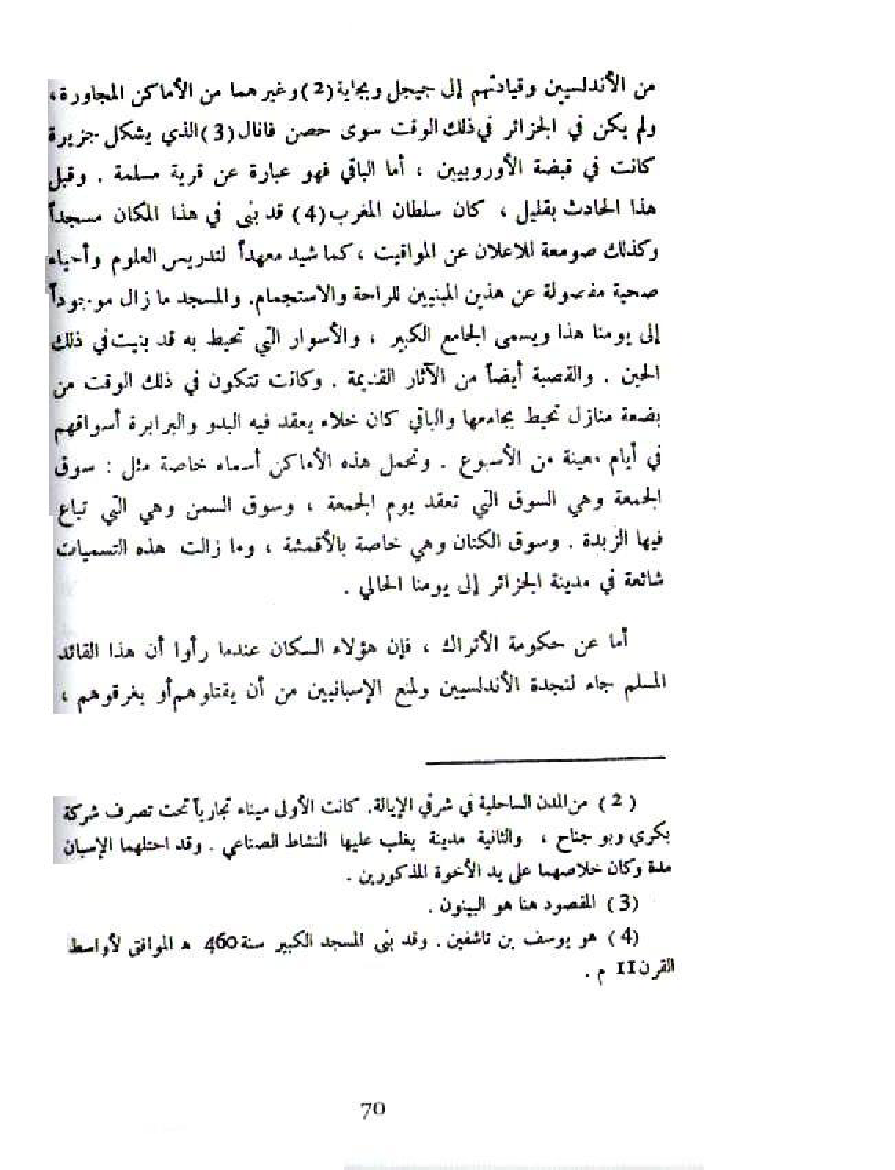 من الأندلسيين وقيادتهم إلى جيجل وبجاية (2) وغيرهما من الأماكن المجاورة،
ولم يكن في الجزائر في ذلك الوقت سوى حصن فانال (3) الذي يشكل جزيرة
كانت في قبضة الأوروبيين ، أما الباقي فهو عبارة عن قرية مسلمة . وقبل
هذا الحادث بقليل ، كان سلطان المغرب (4) قد بنى في هذا المكان مسجداً
وكذلك صومعة للاعلان عن المواقيت ، كما شيد معهداً لتدريس العلوم وأحياء
صحية مفصولة عن هذين المبنيين للراحة والاستجمام. والمسجد ما زال موجوداً
إلى يومنا هذا ويسمى الجامع الكبير ، والأسوار التي تحيط به قد بنيت في ذلك
الحين . والقصبة أيضاً من الآثار القديمة . وكانت تتكون في ذلك الوقت من
بضعة منازل تحيط بجامعها والباقي كان خلاء يعقد فيه البدو والبرابرة أسواقهم
في أيام معينة من الأسبوع . وتحمل هذه الأماكن أسماء خاصة مثل : سوق
الجمعة وهي السوق التي تعقد يوم الجمعة ، وسوق السمن وهي التي تباع
فيها الزبدة . وسوق الكتان وهي خاصة بالأقمشة ، وما زالت هذه التسميات
شائعة في مدينة الجزائر إلى يومنا الحالي .
أما عن حكومة الأتراك ، فإن هؤلاء السكان عندما رأوا أن هذا القائد
المسلم جاء لنجدة الأندلسيين ولمنع الإسبانيين من أن يقتلوهم أو يغرقوهم ،
(2) من المدن الساحلية في شرقي الإيالة. كانت الأولى ميناء تجارياً تحت تصرف شركة
بكري وبو جناح ، والثانية مدينة يغلب عليها النشاط الصناعي . وقد احتلهما الإسبان
مدة وكان خلاصهما على يد الأخوة المذكورين .
(3) المقصود هنا هو البينون .
(4) هو يوسف بن تاشفين . وقد بنى المسجد الكبير سنة 460 هـ الموافق لأواسط
القرن II م .
70